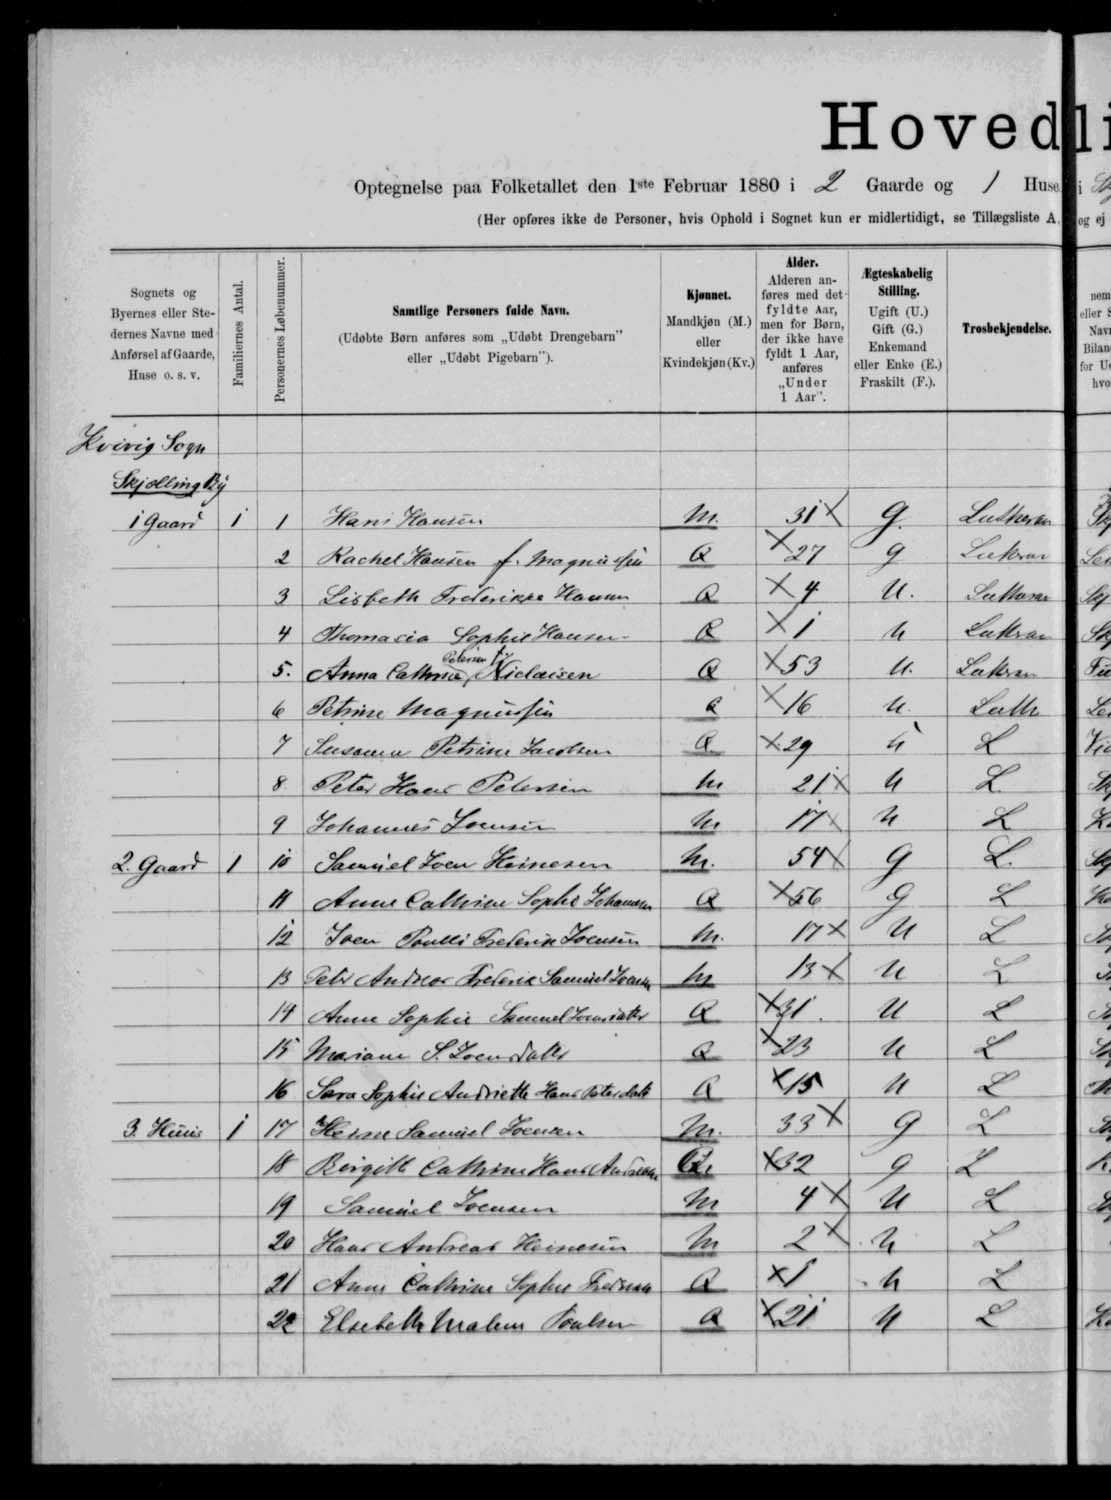 Hovedli
Optegnelse paa Folketallet den 1ste Februar 1880 i 2 Gaarde og 1 Huse i
(Her opføres ikke de Personer, hvis Ophold i Sognet kun er midlertidigt, se Tillægsliste A, og ej
Sognets og Byernes eller Stedernes Navne med Anførsel af Gaarde, Huse o. s. v.
Familiernes Antal.
Personernes Løbenummer.
Samtlige Personers fulde Navn.
(Udøbte Børn anføres som „Udøbt Drengebarn" eller „Udøbt Pigebarn").
Kjønnet.
Mandkjøn (M.) eller Kvindekjøn (Kv.)
Alder.
Alderen anføres med det fyldte Aar, men for Børn, der ikke have fyldt 1 Aar, anføres „Under 1 Aar".
Ægteskabelig Stilling.
Ugift (U.) Gift (G.) Enkemand eller Enke (E.) Fraskilt (F.).
Trosbekjendelse.
Kvivig Sogn
Skjælling By
1 Gaard 1 1 Hans Hansen M. 31 G. Lutheran
2 Rachel Hansen f. Magnussen Q 27 G Lutheran
3 Lisbeth Frederikke Hansen Q 4 U. Lutheran
4 Thomacia Sophie Hansen Q 1 U Lutheran
5. Anna Cathrine Petersen Niclaisen Q 53 U. Lutheran
6 Petrine Magnussen Q 16 U. Luth
7 Susanna Petrine Jacobsen Q 29 U L
8 Peter Hans Petersen M 21 U L
9 Johannes Joensen M 17 U L
2. Gaard 1 10 Samuel Joen Heinesen M. 54 G L.
11 Anne Cathrine Sophie Johansen Q 56 G L
12 Joen Poulli Frederik Joensen M. 17 U L
13 Peter Andreas Frederik Samuel Joensen M 13 U L
14 Anne Sophie Samuel Joensdatter Q 31 U L
15 Mariane S. Joensdatter Q 23 U L
16 Sara Sophie Andriette Hans Petersdatt Q 15 U L
3. Huus 1 17 Heine Samuel Joensen M. 33 G L
18 Birgitte Cathrine Hans Q 32 G L
19 Samuel Joensen M 4 U L
20 Hans Andreas Heinesen M 2 U L
21 Anne Cathrine Sophie Q 1 U L
22 Elsebeth Malene Poulsen Q 21 U L